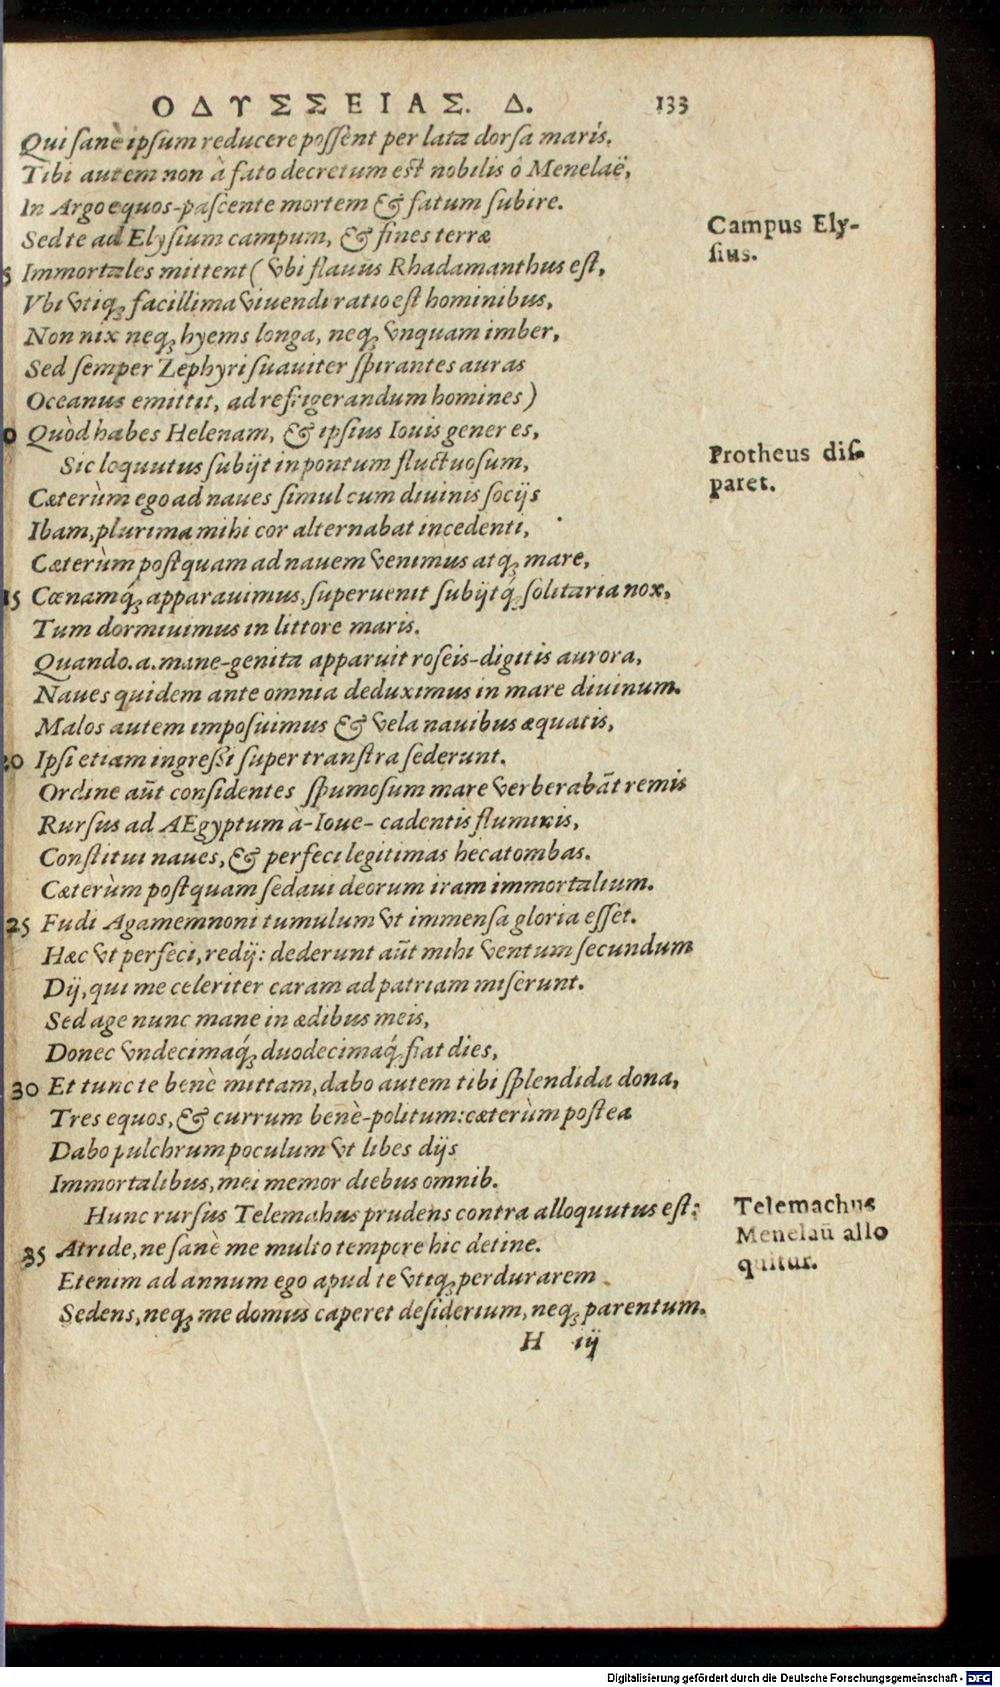 ΟΔΥΣΣΕΙΑΣ. Δ. 133
Qui sanè ipsum reducere possent per lata dorsa maris.
Tibi autem non à fato decretum est nobilis ô Menelaë,
In Argo equos-pascente mortem & fatum subire.
Sed te ad Elysium campum, & fines terræ
Campus Ely-
sius.
5 Immortales mittent (vbi flauus Rhadamanthus est,
Vbi vtiq; facillima viuendi ratio est hominibus,
Non nix neq; hyems longa, neq; vnquam imber,
Sed semper Zephyri suauiter spirantes auras
Oceanus emittit, ad refrigerandum homines)
0 Quòd habes Helenam, & ipsius Iouis gener es,
Protheus dis-
paret.
Sic loquutus subijt in pontum fluctuosum,
Cæterùm ego ad naues simul cum diuinis socijs
Ibam, plurima mihi cor alternabat incedenti,
Cæterùm postquam ad nauem venimus atq; mare,
15 Cœnamq́; apparauimus, superuenit subijtq́; solitaria nox,
Tum dormiuimus in littore maris.
Quando. a. mane-genita apparuit roseis-digitis aurora,
Naues quidem ante omnia deduximus in mare diuinum.
Malos autem imposuimus & vela nauibus æquatis,
20 Ipsi etiam ingressi super transtra sederunt.
Ordine aūt considentes spumosum mare verberabāt remis
Rursus ad AEgyptum à-Ioue-cadentis fluminis,
Constitui naues, & perfeci legitimas hecatombas.
Cæterùm postquam sedaui deorum iram immortalium.
25 Fudi Agamemnoni tumulum vt immensa gloria esset.
Hæc vt perfeci, redij: dederunt aūt mihi ventum secundum
Dij, qui me celeriter caram ad patriam miserunt.
Sed age nunc mane in ædibus meis,
Donec vndecimaq́; duodecimaq́; fiat dies,
30 Et tunc te benè mittam, dabo autem tibi splendida dona,
Tres equos, & currum benè-politum: cæterùm postea
Dabo pulchrum poculum vt libes dijs
Immortalibus, mei memor diebus omnib.
Hunc rursus Telemahus prudens contra alloquutus est:
Telemachus
Menelaū allo
quitur.
35 Atride, ne sanè me multo tempore hic detine.
Etenim ad annum ego apud te vtiq; perdurarem
Sedens, neq; me domus caperet desiderium, neq; parentum.
H iij
Digitalisierung gefördert durch die Deutsche Forschungsgemeinschaft - DFG